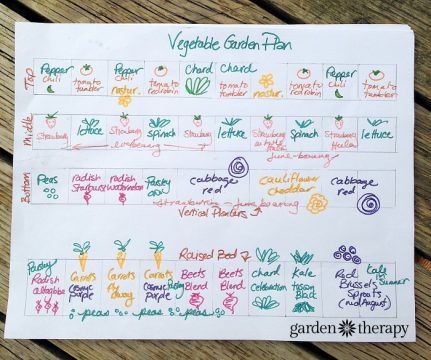 Vegetable Garden Plan
Top
Pepper chili
tomato tumbler
Pepper chili
nastur.
tomato red robin
Chard
Chard
tomato tumbler
nastur.
tomato red robin
Pepper chili
tomato tumbler
Middle
Strawberry
lettuce
Strawberry
spinach
Strawberry
lettuce
Strawberry
Spinach
Strawberry
lettuce
everbearing
june-bearing
Bottom
Peas
radish Starburst
radish watermelon
Parsley
cabbage red
cauliflower cheddar
cabbage red
strawberries - june bearing
Vertical Planters
Raised Bed
Parsley
Radish
Carrots cosmic purple
Carrots
Carrots cosmic purple
Parsley
Beets Blend
Beets Blend
chard celebration
Kale Tuscan Black
Red Brussels Sprouts
Kale
Summer
peas
peas
peas
garden therapy